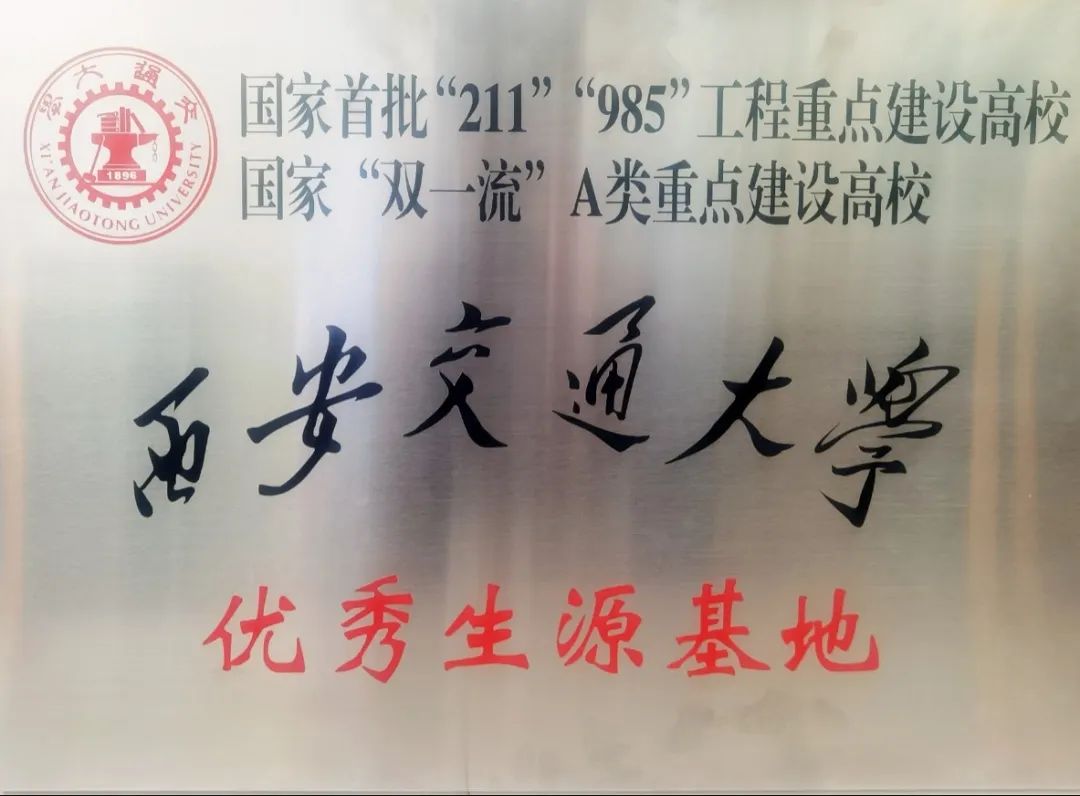 交通大學
XI'AN JIAOTONG UNIVERSITY
1896
国家首批“211”“985”工程重点建设高校
国家“双一流”A类重点建设高校
西安交通大學
优秀生源基地